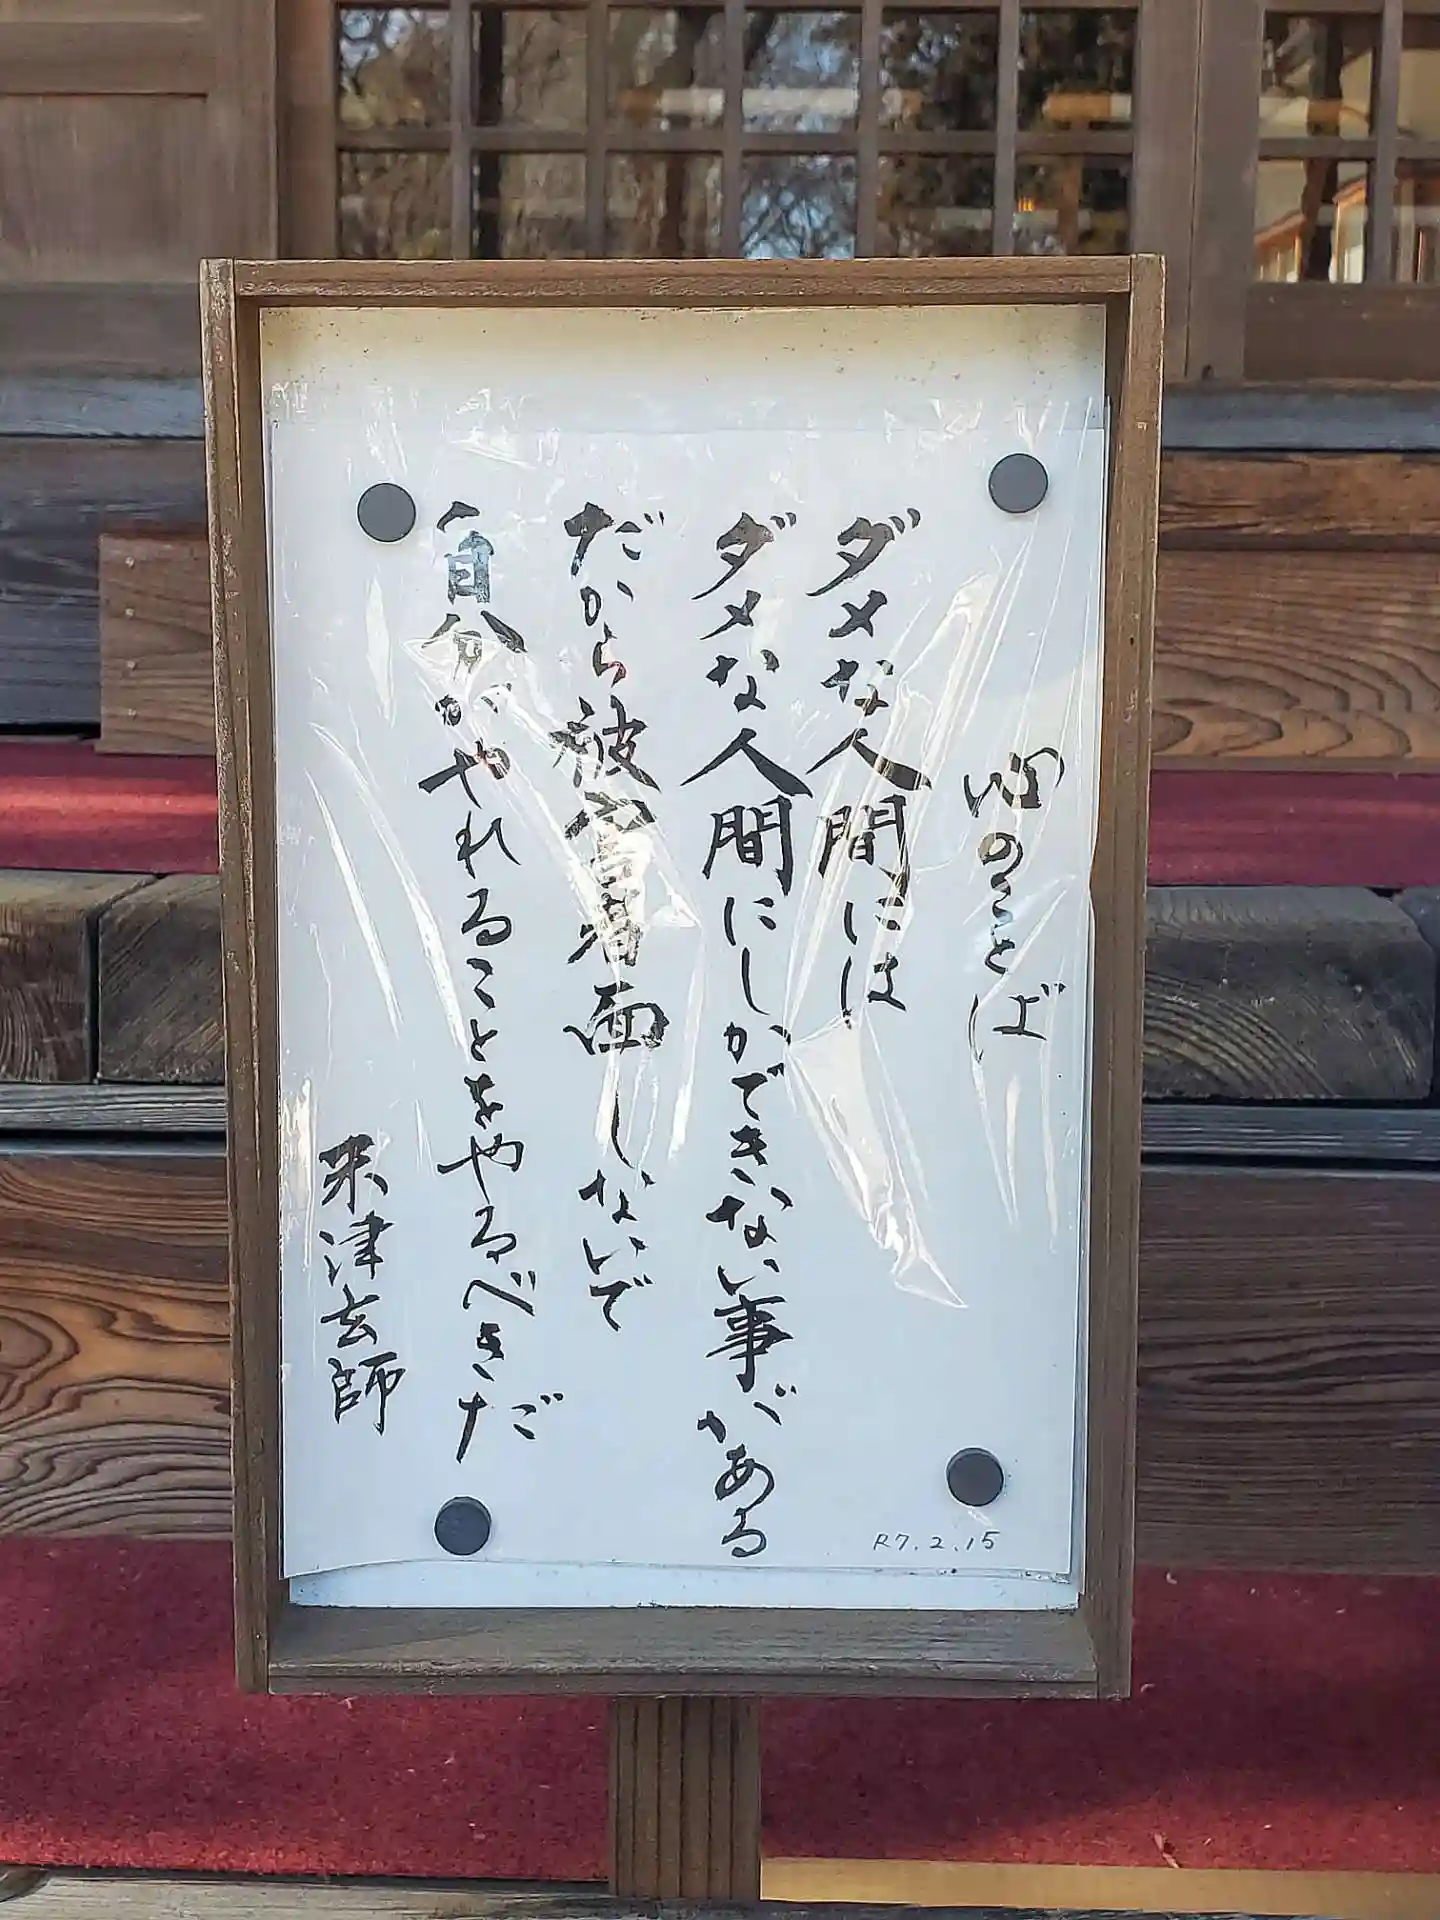 心のことば
ダメな人間には
ダメな人間にしかできない事がある
だから被害者面しないで
自分がやれることをやるべきだ
米津玄師
R7.2.15